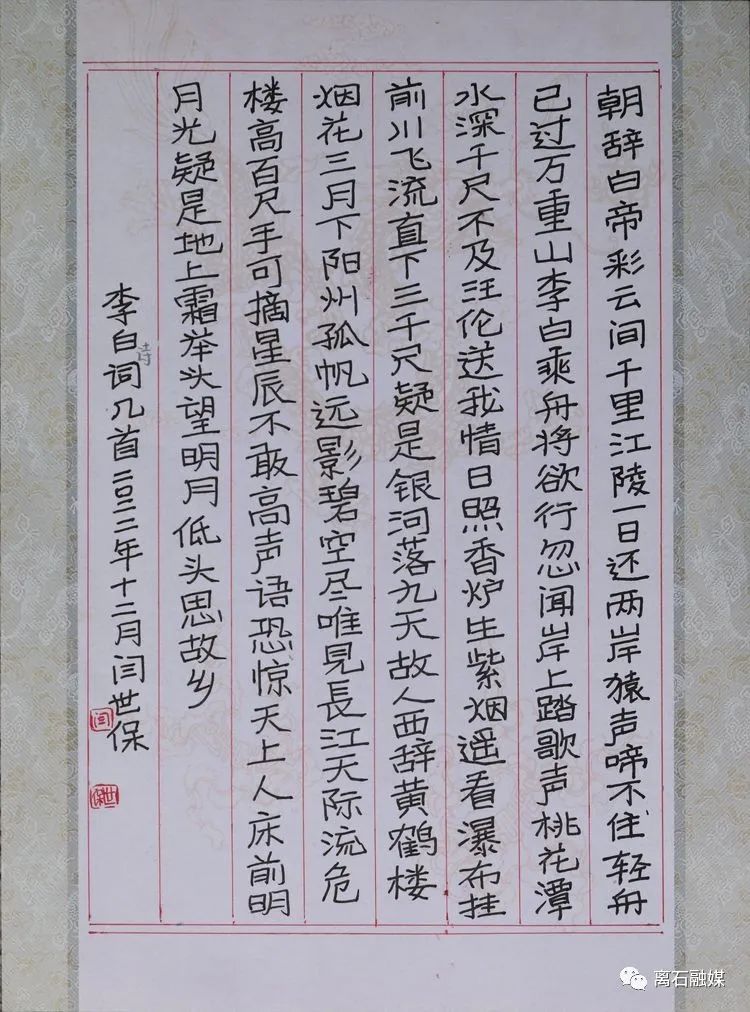 朝辞白帝彩云间千里江陵一日还两岸猿声啼不住轻舟
已过万重山李白乘舟将欲行忽闻岸上踏歌声桃花潭
水深千尺不及汪伦送我情日照香炉生紫烟遥看瀑布挂
前川飞流直下三千尺疑是银河落九天故人西辞黄鹤楼
烟花三月下阳州孤帆远影碧空尽唯见長江天际流危
楼高百尺手可摘星辰不敢高声语恐惊天上人床前明
月光疑是地上霜举头望明月低头思故乡
李白词诗几首二〇二二年十二月闫世保
闫
世保
离石融媒